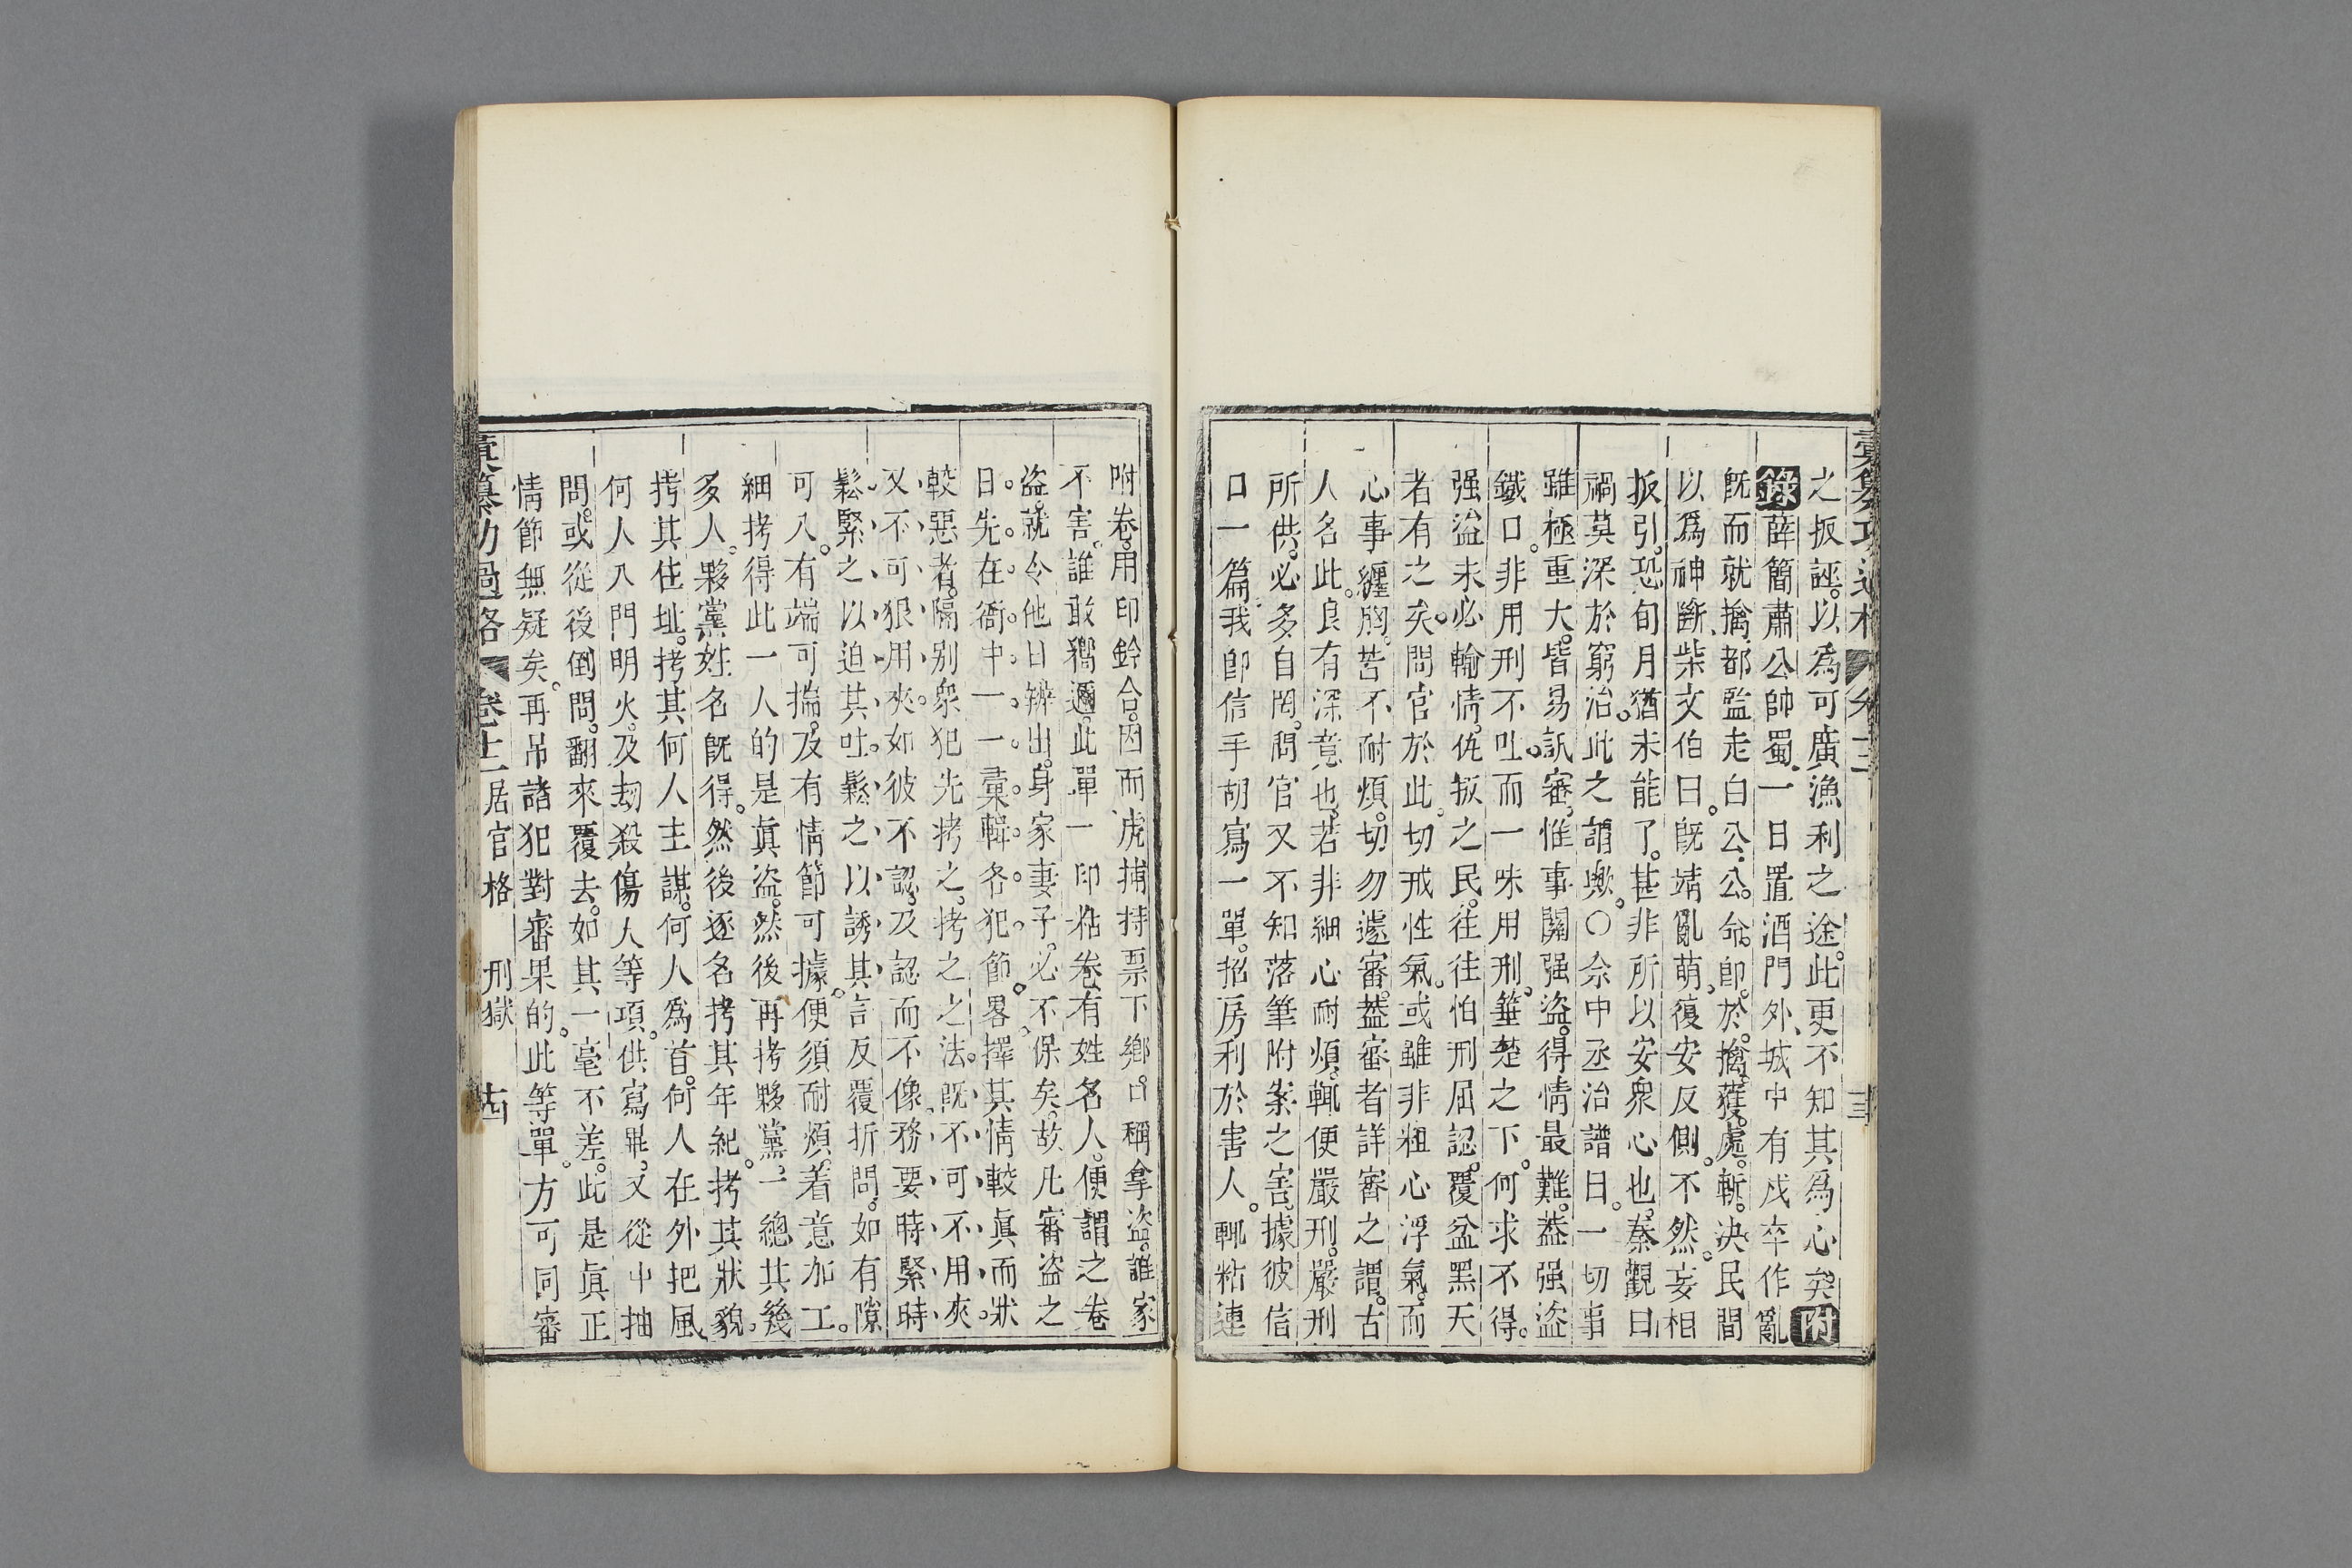 之扳誣。以爲可廣漁利之途。此更不知其爲心矣附
錄薛簡肅公帥蜀、一日置酒門外、城中有戍卒作亂
旣而就擒、都監走白公、公。命。卽。於。擒。獲。處。斬。決民間
以爲神斷、柴文伯曰。旣靖亂萌、復安反側。不然。妄相
扳引。恐旬月猶未能了。甚非所以安衆心也。秦觀曰
禍莫深於窮治。此之謂歟。○佘中丞治譜曰。一切事
雖極重大。皆易訊審。惟事關强盜。得情最難。葢强盜
鐵口。非用刑不吐。而一味用刑。箠楚之下。何求不得。
强盜未必輸情。仇扳之民。往往怕刑屈認。覆盆黑天
者有之矣。問官於此。切戒性氣。或雖非粗心浮氣。而
心事纒胸。苦不耐煩。切勿遽審。葢審者詳審之謂。古
人名此。良有深意也。若非細心耐煩。輒便嚴刑。嚴刑
所供。必多自罔。問官又不知落筆附案之害。據彼信
口一篇。我卽信手胡寫一單。招房利於害人。輒粘連
附卷。用印鈐合。因而虎捕持票下鄉。口稱拿盜。誰家
不害。誰敢攔邇。此單一印粘卷、有姓名人。便謂之卷
盜。就令他日辨出。身家妻子。必不保矣。故凡審盜之
日。先。在。衙。中。一。一。彙。輯。各。犯。節。畧。擇其情較眞而狀
較惡者。隔别衆犯先拷之。拷之之法。旣不可不用夾。
又不可狠用夾、如彼不認。及認而不像。務要時緊時
鬆緊之以迫其吐。鬆之以誘其言反覆折問。如有隙
可入。有端可揣。及有情節可據。便須耐煩。着意加工。
細拷得此一人的是眞盜。然後再拷夥黨。一總共幾
多人。夥黨姓名旣得。然後逐名拷其年紀。拷其狀貌。
拷其住址。拷其何人主謀。何人爲首。何人在外把風
何人入門明火。及刼殺傷人等項。供寫畢。又從中抽
問。或從後倒問。翻來覆去。如其一毫不差。此是眞正
情節無疑矣。再吊諸犯對審果的。此等單。方可同審
彙纂功過格 卷十二居官格 刑獄 十四